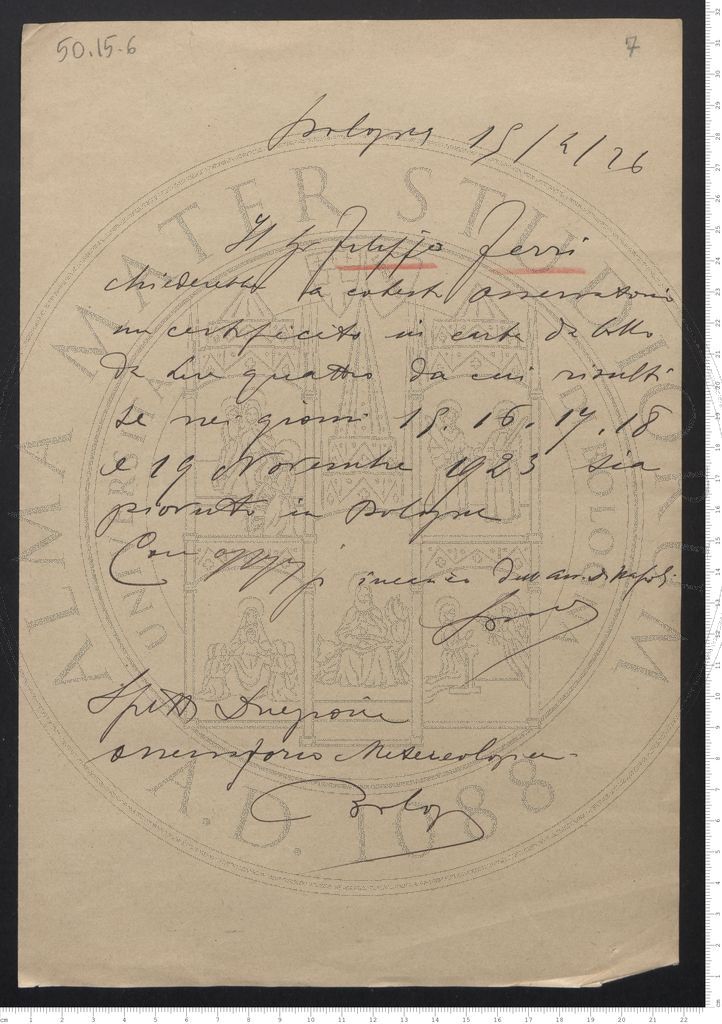 50.15-6
7
Bologna 15/2/26
Il Sig. Filippo Ferri
chiederebbe a codesto osservatorio
un certificato in carta da bollo
da Lire quattro da cui risulti
se nei giorni 15. 16. 17. 18
e 19 Novembre 1923 sia
piovuto in Bologna
Con
Spett. Direzione
Osservatorio Metereologico
Bologna
ALMA MATER STUDIORUM
A.D. 1088